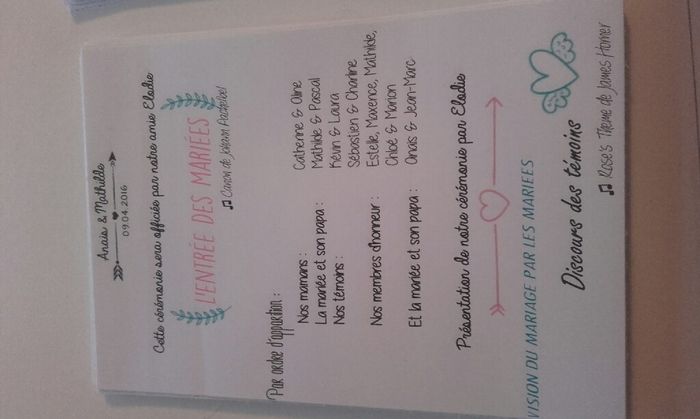 Anaïs & Mathilde
09.04.2016
Cette cérémonie sera officiée par notre amie Elodie
L'ENTRÉE DES MARIÉES
♫ Canon de Johann Pachelbel
Par ordre d'apparition :
Nos mamans : Catherine & Aline
La mariée et son papa : Mathilde & Pascal
Nos témoins : Kévin & Laura
Sébastien & Charline
Nos membres d'honneur : Estelle, Maxence, Mathilde,
Chloé & Marion
Et la mariée et son papa : Anaïs & Jean-Marc
Présentation de notre cérémonie par Elodie
VISION DU MARIAGE PAR LES MARIEES
Discours des témoins
♫ Rose's Theme de James Horner